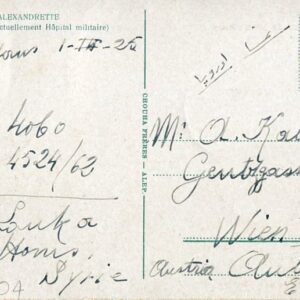 ALEXANDRETTE
ctuellement Hôpital militaire)
Homs 1-III-25
4060
4524/62
Louka
Homs.
Syrie
CHOUHA FRÈRES - ALEP.
اوروپا
Mr A. Ka
Gentzgass
Wien
Austria